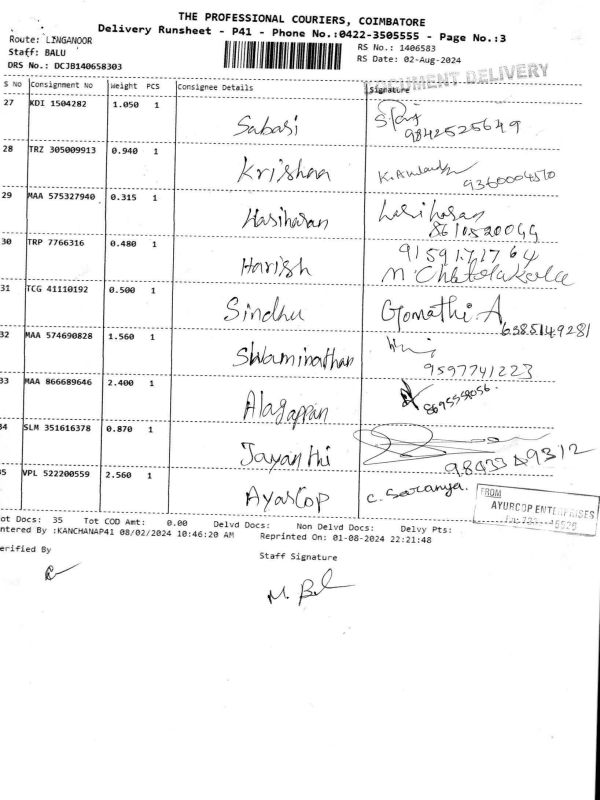 THE PROFESSIONAL COURIERS, COIMBATORE
Delivery Runsheet - P41 - Phone No.:0422-3505555 - Page No.:3
Route: LINGANOOR
Staff: BALU
DRS No.: DCJB140658303
RS No.: 1406583
RS Date: 02-Aug-2024
DOCUMENT DELIVERY
S No Consignment No Weight PCS Consignee Details Signature
27 KDI 1504282 1.050 1 Sabasi
9842525649
28 TRZ 305009913 0.940 1 Krishna
9360004510
29 MAA 575327940 0.315 1 Hasihasan
Hasihasan
30 TRP 7766316 0.480 1 Harish
9159171764
31 TCG 41110192 0.500 1 Sindhu
Gomathi.A
6385149281
32 MAA 574690828 1.560 1 Swaminathan
9597741223
33 MAA 866689646 2.400 1 Alagappan
34 SLM 351616378 0.870 1 Jayanthi
35 VPL 522200559 2.560 1 AyasCop
C. Saranya.
FROM
AYURCOP ENTERPRISES
Tot Docs: 35 Tot COD Amt: 0.00 Delvd Docs: Non Delvd Docs: Delvy Pts:
Entered By :KANCHANAP41 08/02/2024 10:46:20 AM Reprinted On: 01-08-2024 22:21:48
Verified By Staff Signature